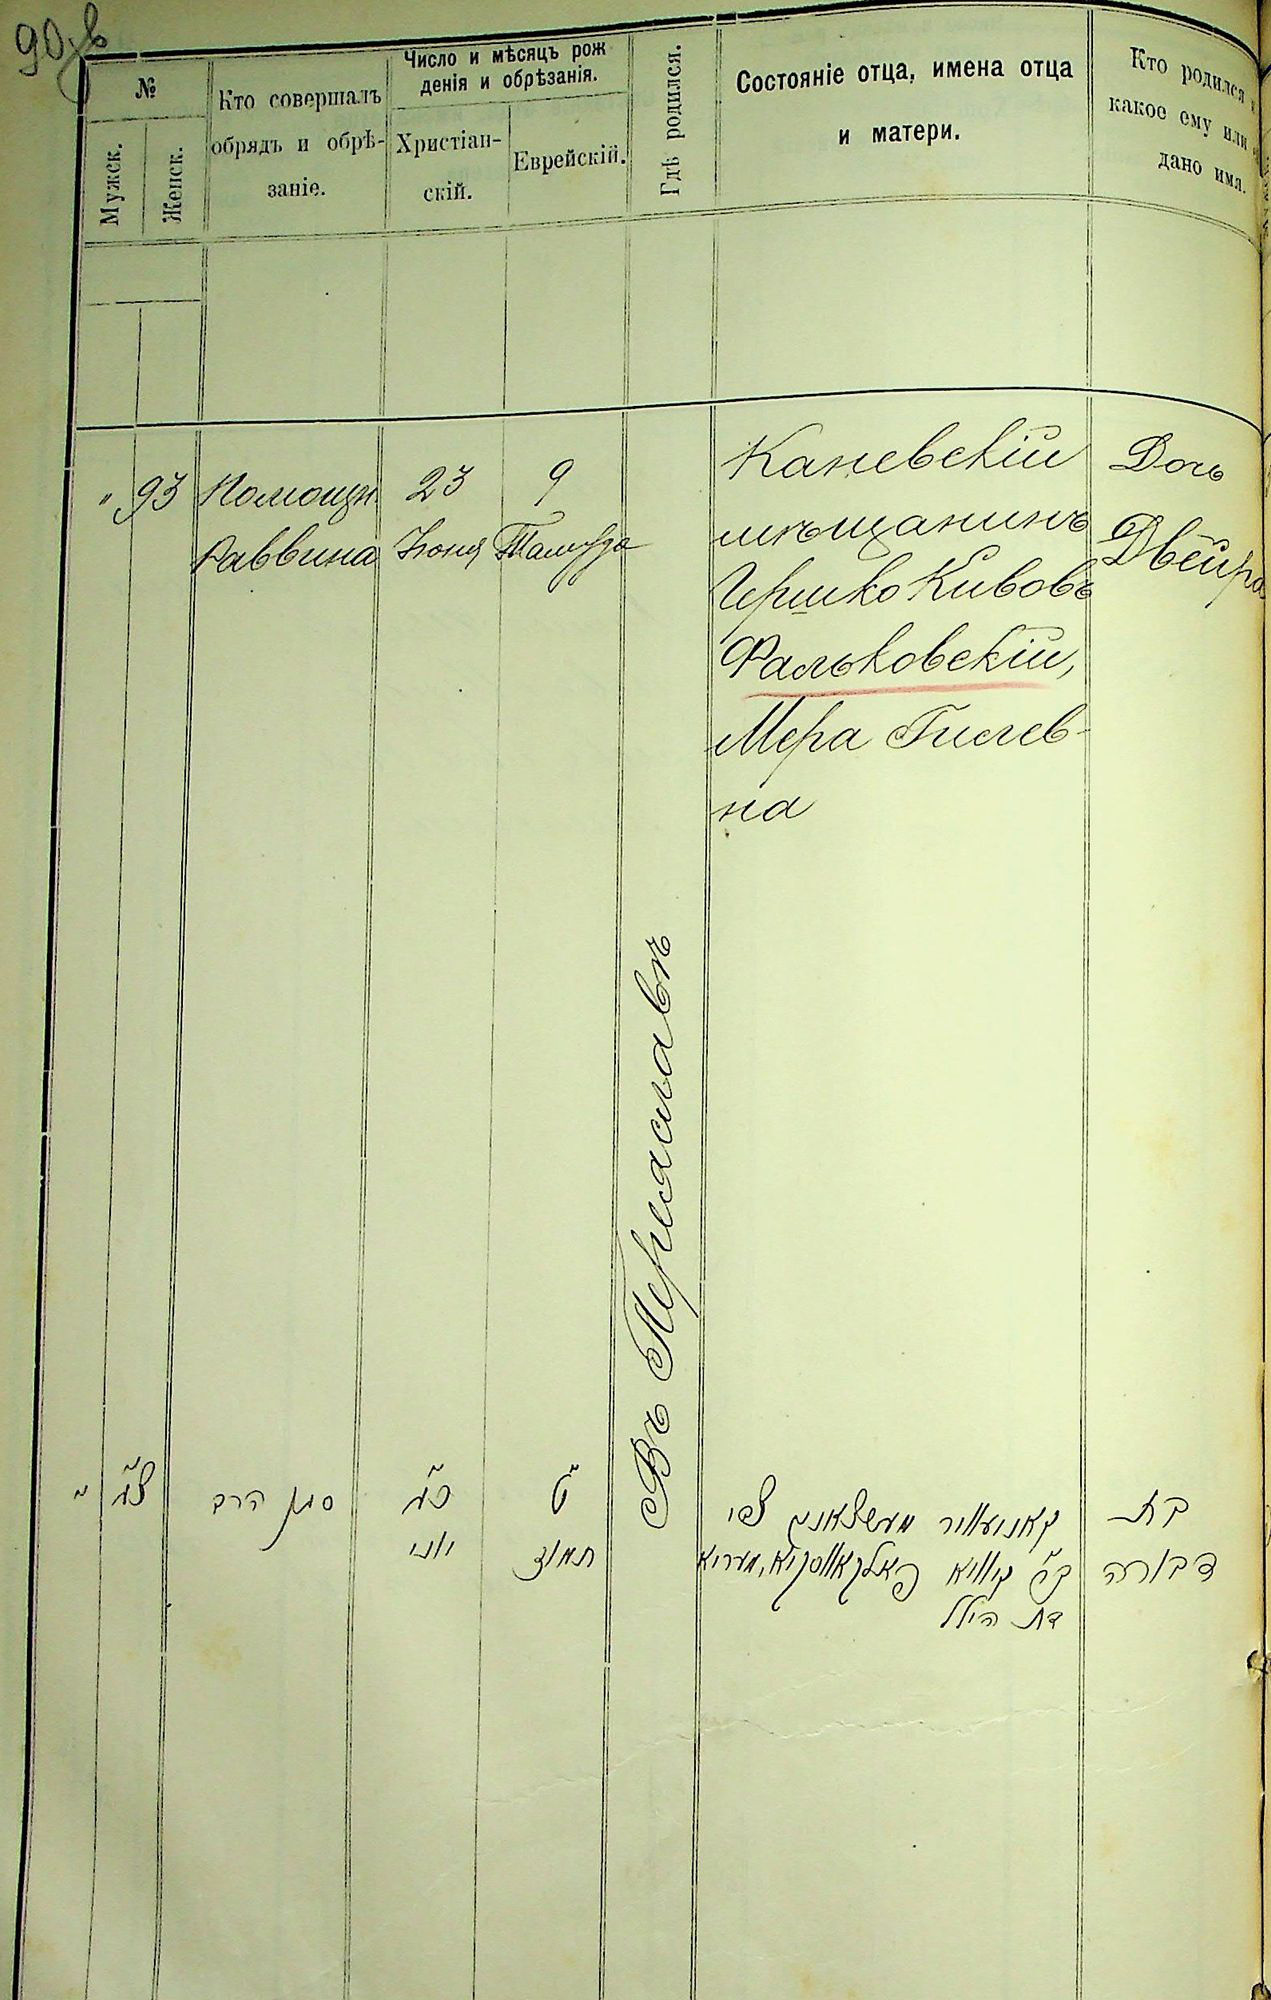 90 об
№
Мужск.
Женск.
Кто совершалъ
обрядъ и обрѣ-
заніе.
Число и мѣсяцъ рож
денія и обрѣзанія.
Христіан-
скій.
Еврейскій.
Гдѣ родился.
Состояніе отца, имена отца
и матери.
Кто родился и
какое ему или
дано имя.
" 93
Помощн.
Раввина
23
Іюня
9
Тамуза
Въ Переяславѣ
Каневскій
мѣщанинъ
Гершко Кивовъ
Фальковскій,
Мера Гилев-
на
Дочь
Двейра
" צ״ג
סגן הרב
כ״ג
יוני
ט׳
תמוז
קאניעווער מעשצאנין צבי
ב״ר קיווא פאלקאווסקיא, מעריא
בת הילל
בת
דבורה